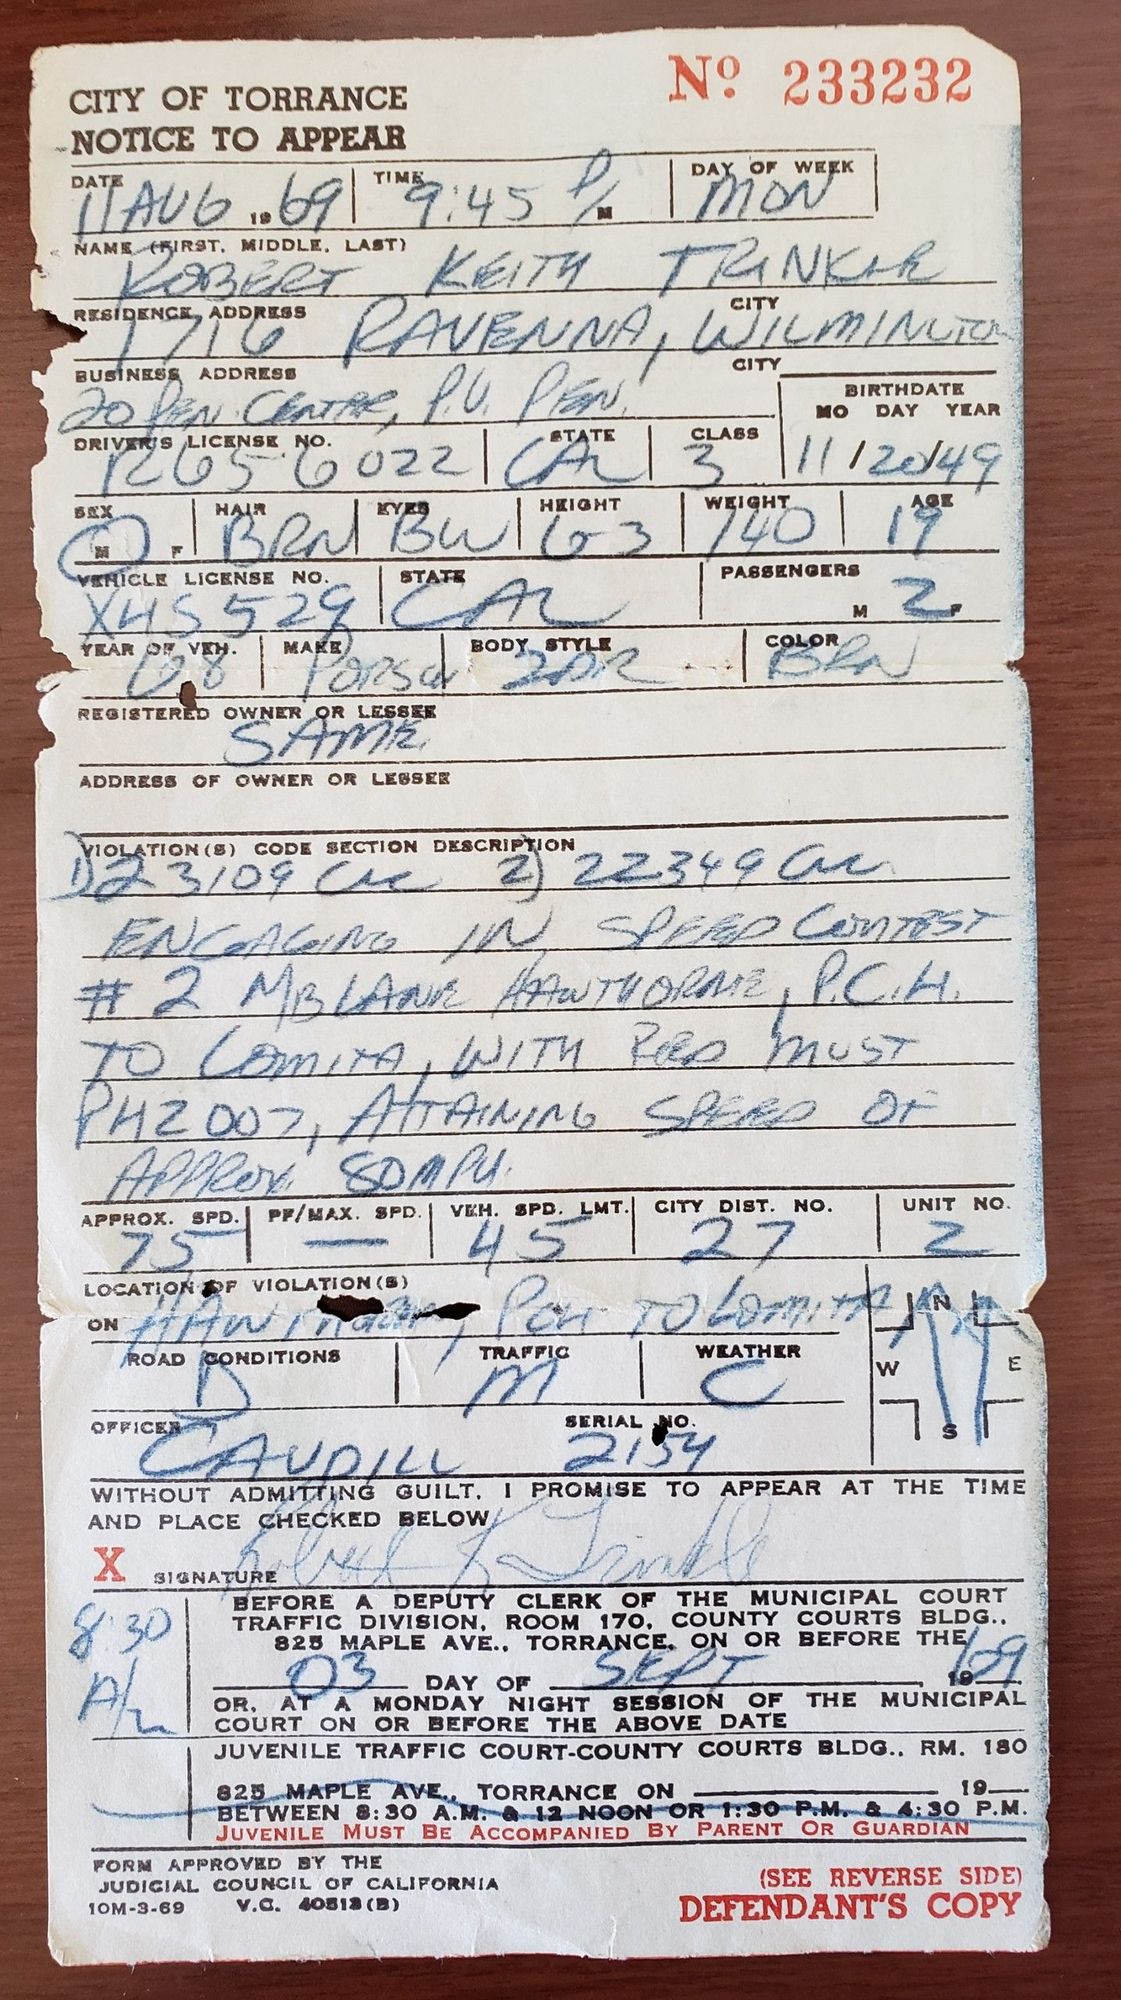 CITY OF TORRANCE
NOTICE TO APPEAR
Nº 233232
DATE TIME DAY OF WEEK
11 AUG 19 69 9:45 P/M MON
NAME (FIRST, MIDDLE, LAST)
ROBERT KEITH TRINKLE
RESIDENCE ADDRESS CITY
1716 RAVENNA, WILMINGTON
BUSINESS ADDRESS CITY
20 PEN. CENTRE, P.V. PEN.
BIRTHDATE
MO DAY YEAR
DRIVER'S LICENSE NO. STATE CLASS
CAL 3 11/20/49
SEX HAIR EYES HEIGHT WEIGHT AGE
M F BRN 6-3 140 19
VEHICLE LICENSE NO. STATE PASSENGERS
529 CAL M 2 F
YEAR OF VEH. MAKE BODY STYLE COLOR
68 2DR BRN
REGISTERED OWNER OR LESSEE
SAME
ADDRESS OF OWNER OR LESSEE
VIOLATION(S) CODE SECTION DESCRIPTION
1) 23109 CVC 2) 22349 CVC
ENGAGING IN SPEED CONTEST
# 2 NB LANE HAWTHORNE, P.C.H.
TO LOMITA, WITH RED MUST
PHZ 007, ATTAINING SPEED OF
APPROX. 80 MPH.
APPROX. SPD. PF/MAX. SPD. VEH. SPD. LMT. CITY DIST. NO. UNIT NO.
75 — 45 27 2
LOCATION OF VIOLATION(S)
ON HAWTHORNE, PCH TO LOMITA
N
W E
S
ROAD CONDITIONS TRAFFIC WEATHER
D M C
OFFICER SERIAL NO.
CAUDILL 2154
WITHOUT ADMITTING GUILT, I PROMISE TO APPEAR AT THE TIME
AND PLACE CHECKED BELOW
X SIGNATURE Robert K Trinkle
8:30
A/M
BEFORE A DEPUTY CLERK OF THE MUNICIPAL COURT
TRAFFIC DIVISION, ROOM 170, COUNTY COURTS BLDG.,
825 MAPLE AVE., TORRANCE, ON OR BEFORE THE
03 DAY OF SEPT 19 69
OR, AT A MONDAY NIGHT SESSION OF THE MUNICIPAL
COURT ON OR BEFORE THE ABOVE DATE
JUVENILE TRAFFIC COURT-COUNTY COURTS BLDG., RM. 180
825 MAPLE AVE., TORRANCE ON 19
BETWEEN 8:30 A.M. & 12 NOON OR 1:30 P.M. & 4:30 P.M.
JUVENILE MUST BE ACCOMPANIED BY PARENT OR GUARDIAN
FORM APPROVED BY THE
JUDICIAL COUNCIL OF CALIFORNIA
10M-3-69 V.C. 40513(B)
(SEE REVERSE SIDE)
DEFENDANT'S COPY